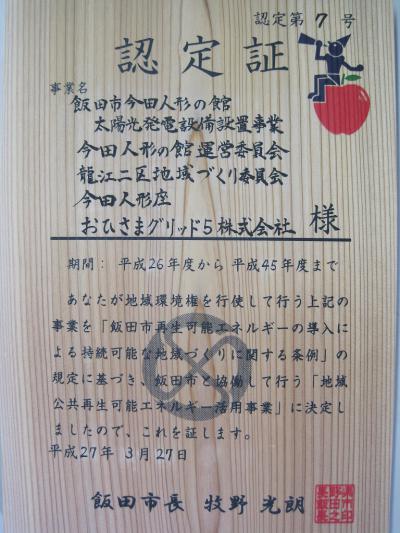 認定第7号
認定証
事業名
飯田市今田人形の館
太陽光発電設備設置事業
今田人形の館運営委員会
龍江二区地域づくり委員会
今田人形座
おひさまグリッド5株式会社 様
期間： 平成26年度から 平成45年度まで
あなたが地域環境権を行使して行う上記の
事業を「飯田市再生可能エネルギーの導入に
よる持続可能な地域づくりに関する条例」の
規定に基づき、飯田市と協働して行う「地域
公共再生可能エネルギー活用事業」に決定し
ましたので、これを証します。
平成27年 3月27日
飯田市長 牧野 光朗